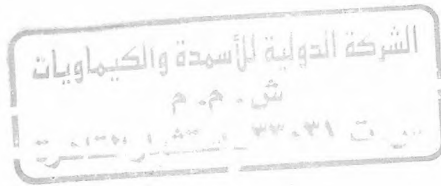 الشركة الدولية للأسمدة والكيماويات
ش . م . م
س . ت ٣٣٠٣١